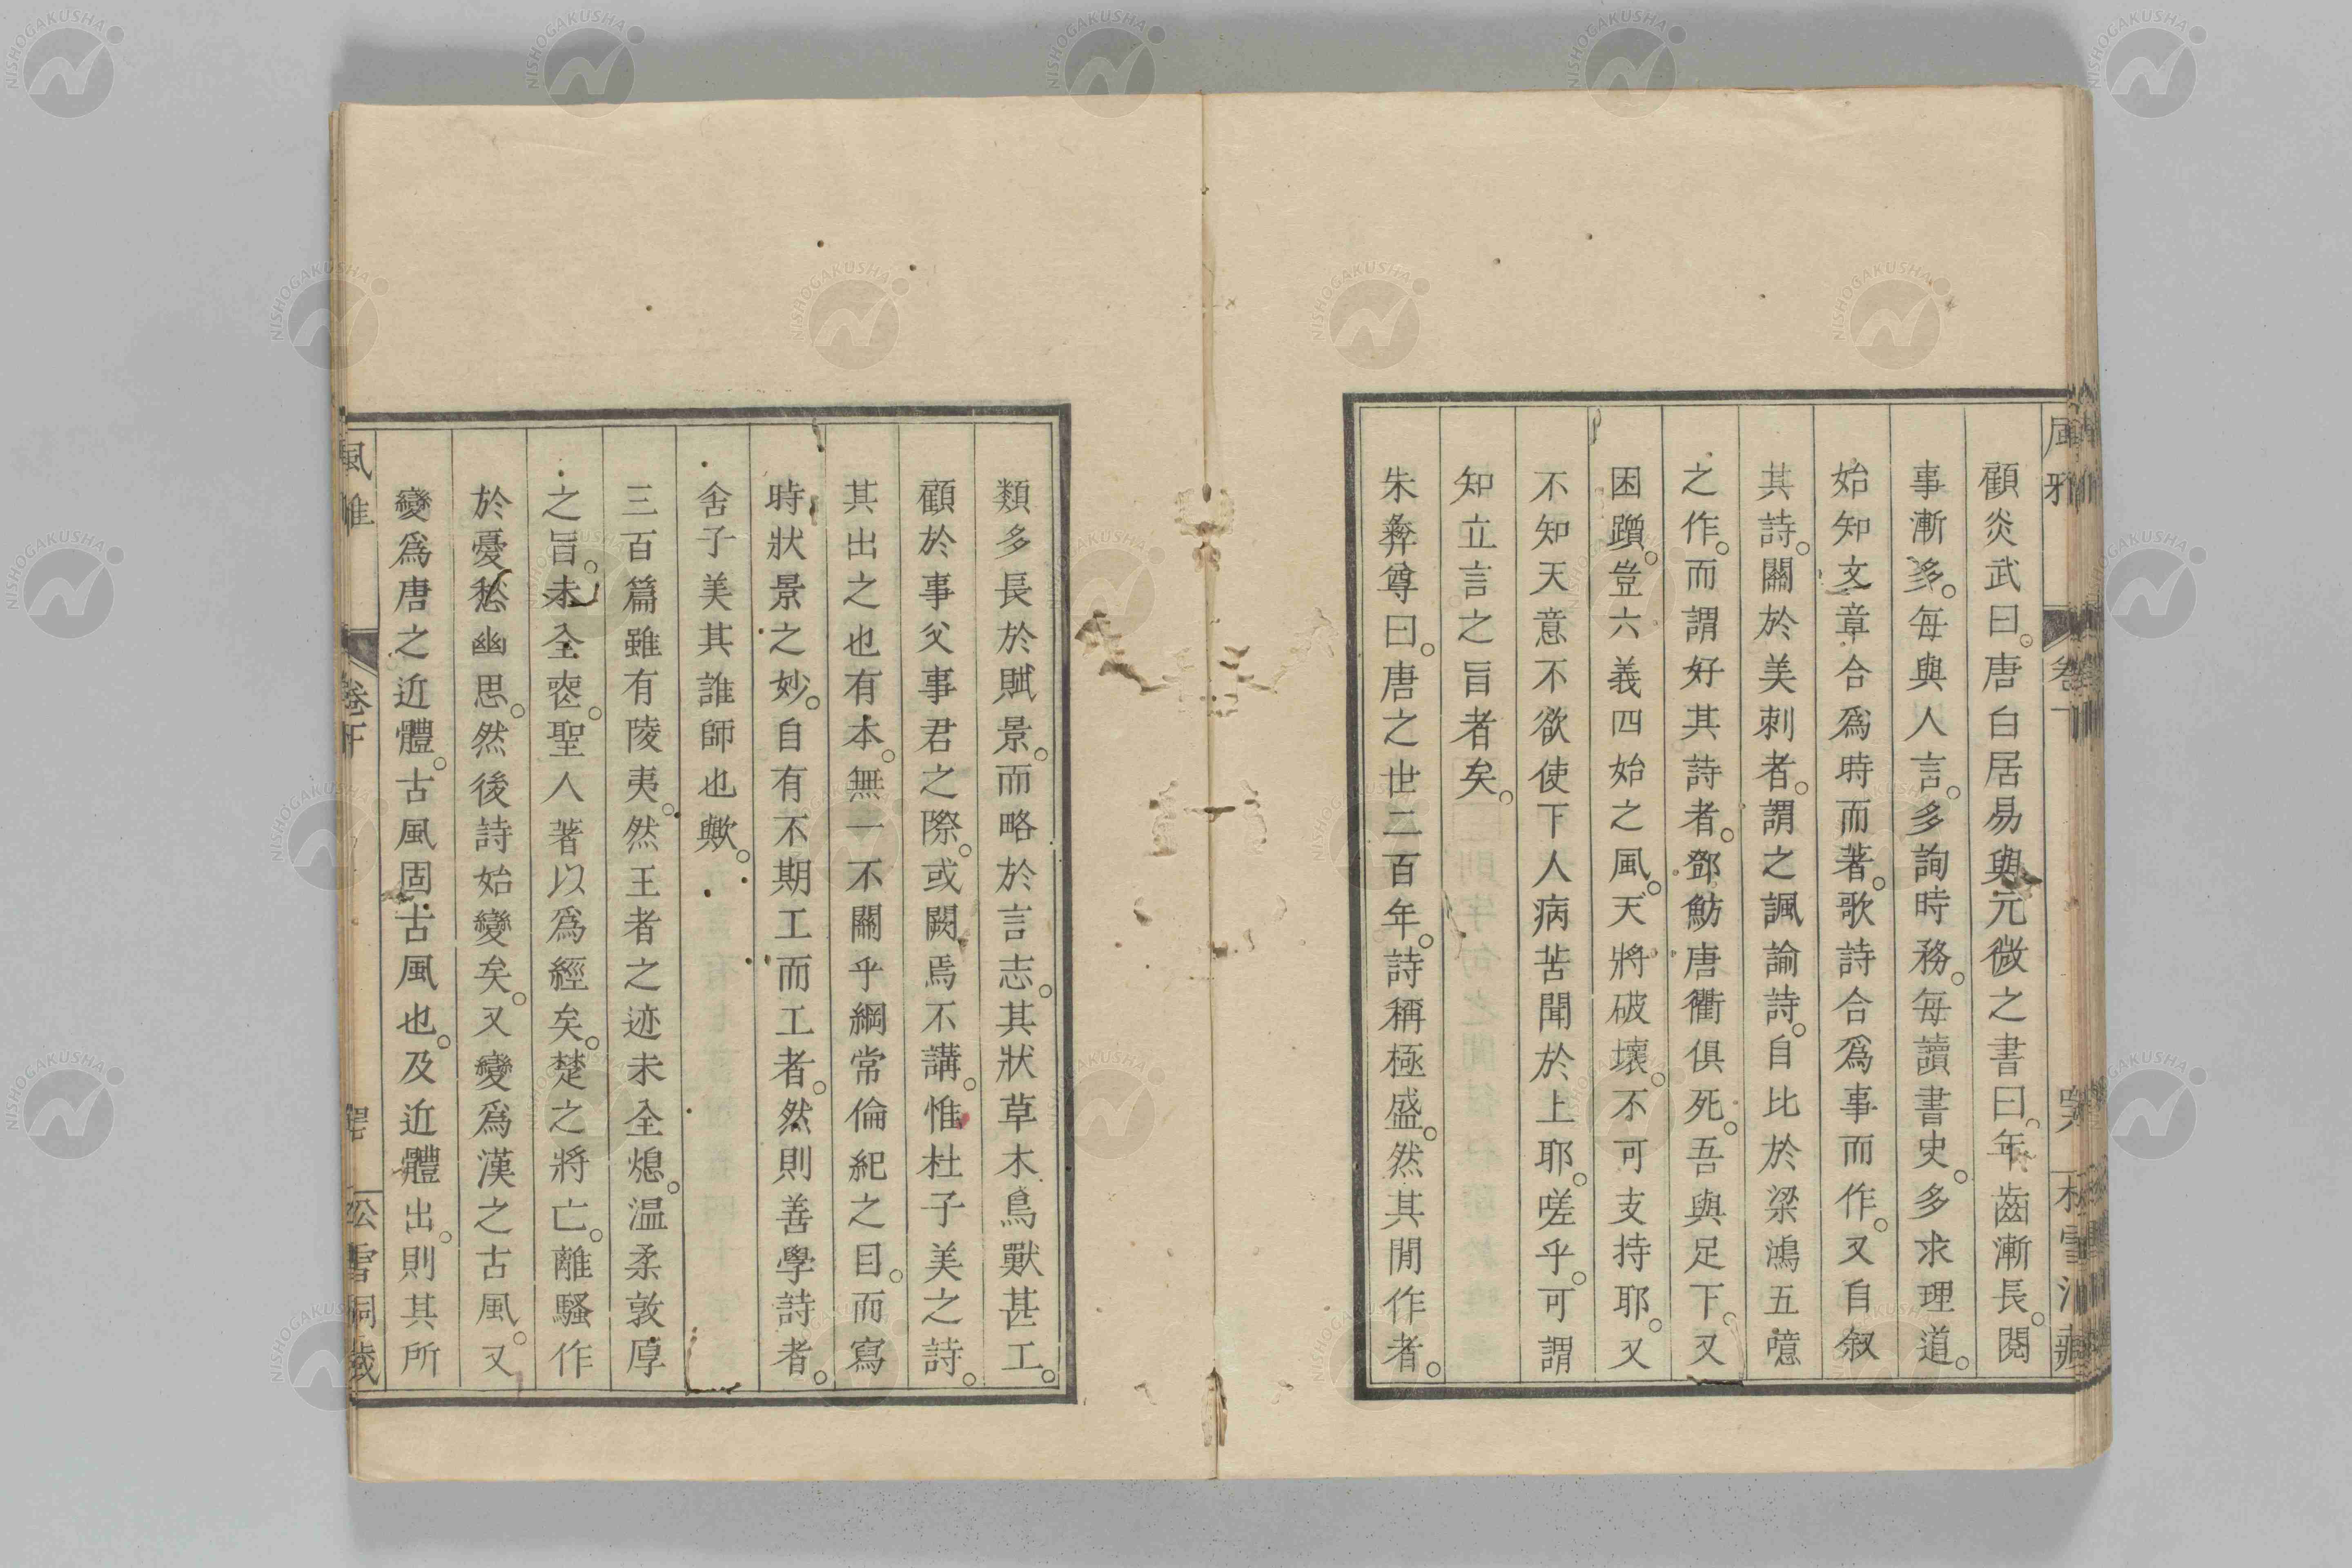 顧炎武曰。唐白居易與元微之書曰。年齒漸長。閱
事漸多。每與人言。多詢時務。每讀書史。多求理道。
始知文章合爲時而著。歌詩合爲事而作。又自叙
其詩。關於美刺者。謂之諷諭詩。自比於梁鴻五噫
之作。而謂好其詩者。鄧魴唐衢俱死。吾與足下又
困躓。豈六義四始之風。天將破壞。不可支持耶。又
不知天意不欲使下人病苦聞於上耶。嗟乎。可謂
知立言之旨者矣。
朱彝尊曰。唐之世二百年。詩稱極盛。然其閒作者。
類多長於賦景。而略於言志。其狀草木鳥獸甚工。
顧於事父事君之際。或闕焉不講。惟杜子美之詩。
其出之也有本。無一不關乎綱常倫紀之目。而寫
時狀景之妙。自有不期工而工者。然則善學詩者。
舍子美其誰師也歟。
三百篇雖有陵夷。然王者之迹未全熄。温柔敦厚
之旨。未全喪。聖人著以爲經矣。楚之將亡。離騷作
於憂愁幽思。然後詩始變矣。又變爲漢之古風。又
變爲唐之近體。古風固古風也。及近體出。則其所
NISHOGAKUSHA